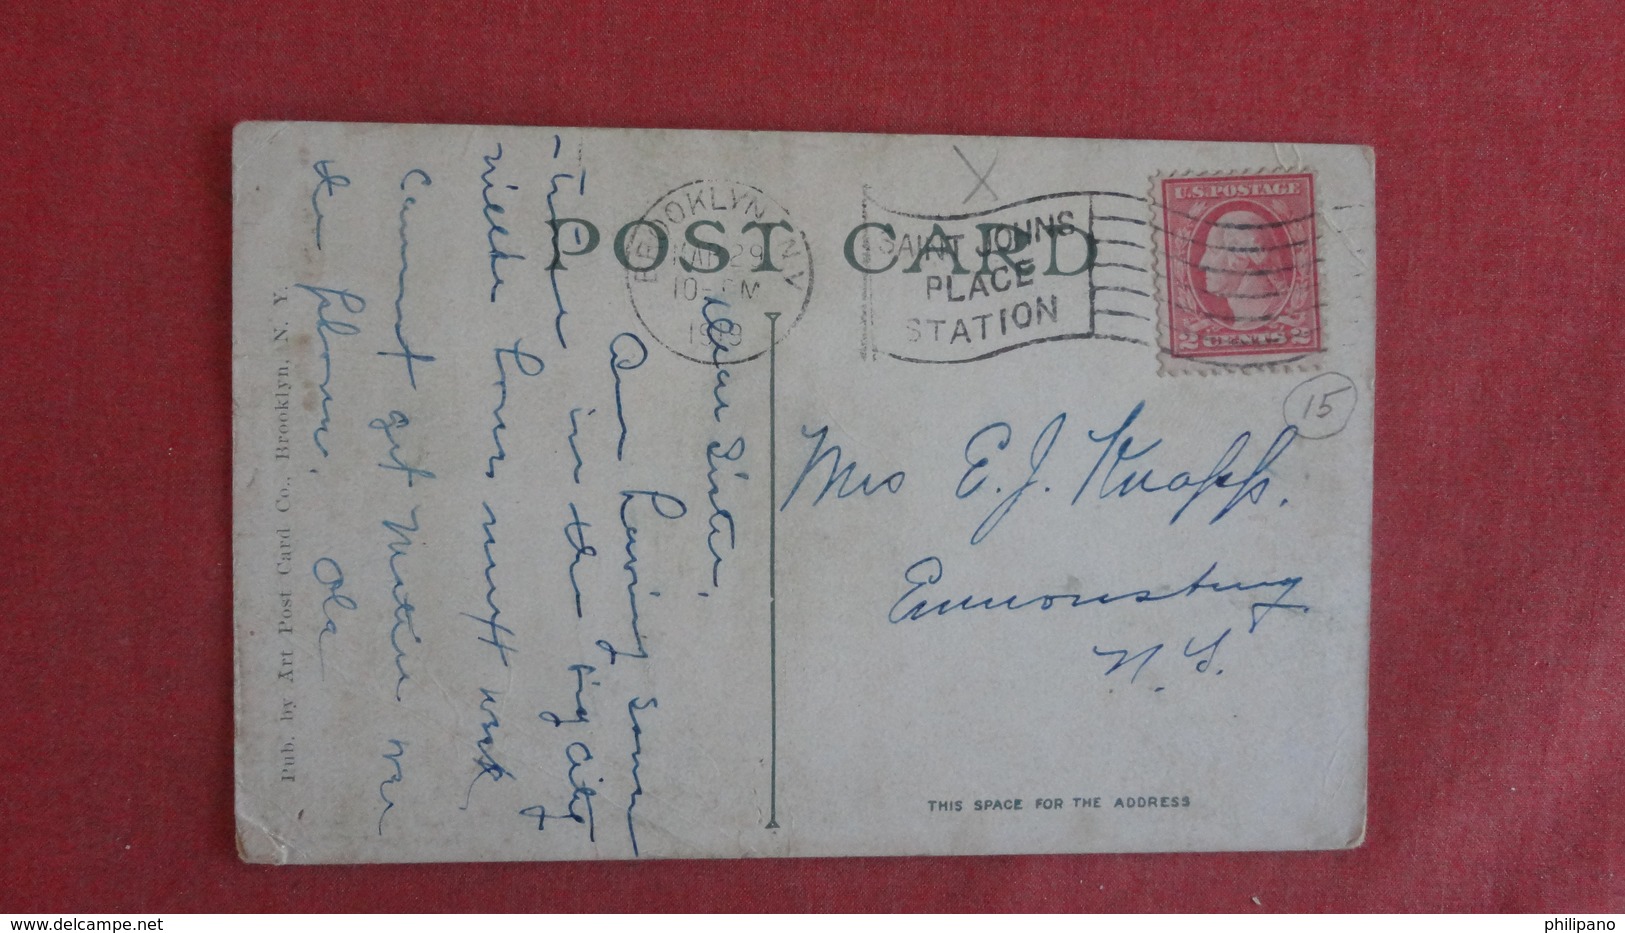 POST CARD
BROOKLYN N.Y.
MAR 29
10- PM
SAINT JOHNS
PLACE
STATION
U.S. POSTAGE
2 CENTS 2
15
Mrs E. J. Knapp.
Emmonsburg
N. Y.
THIS SPACE FOR THE ADDRESS
Dear Sister,
Am having some
time in the big city
will be home next week
Cannot get Mattie over
the phone. Ola
Pub. by Art Post Card Co., Brooklyn, N. Y.
philipano